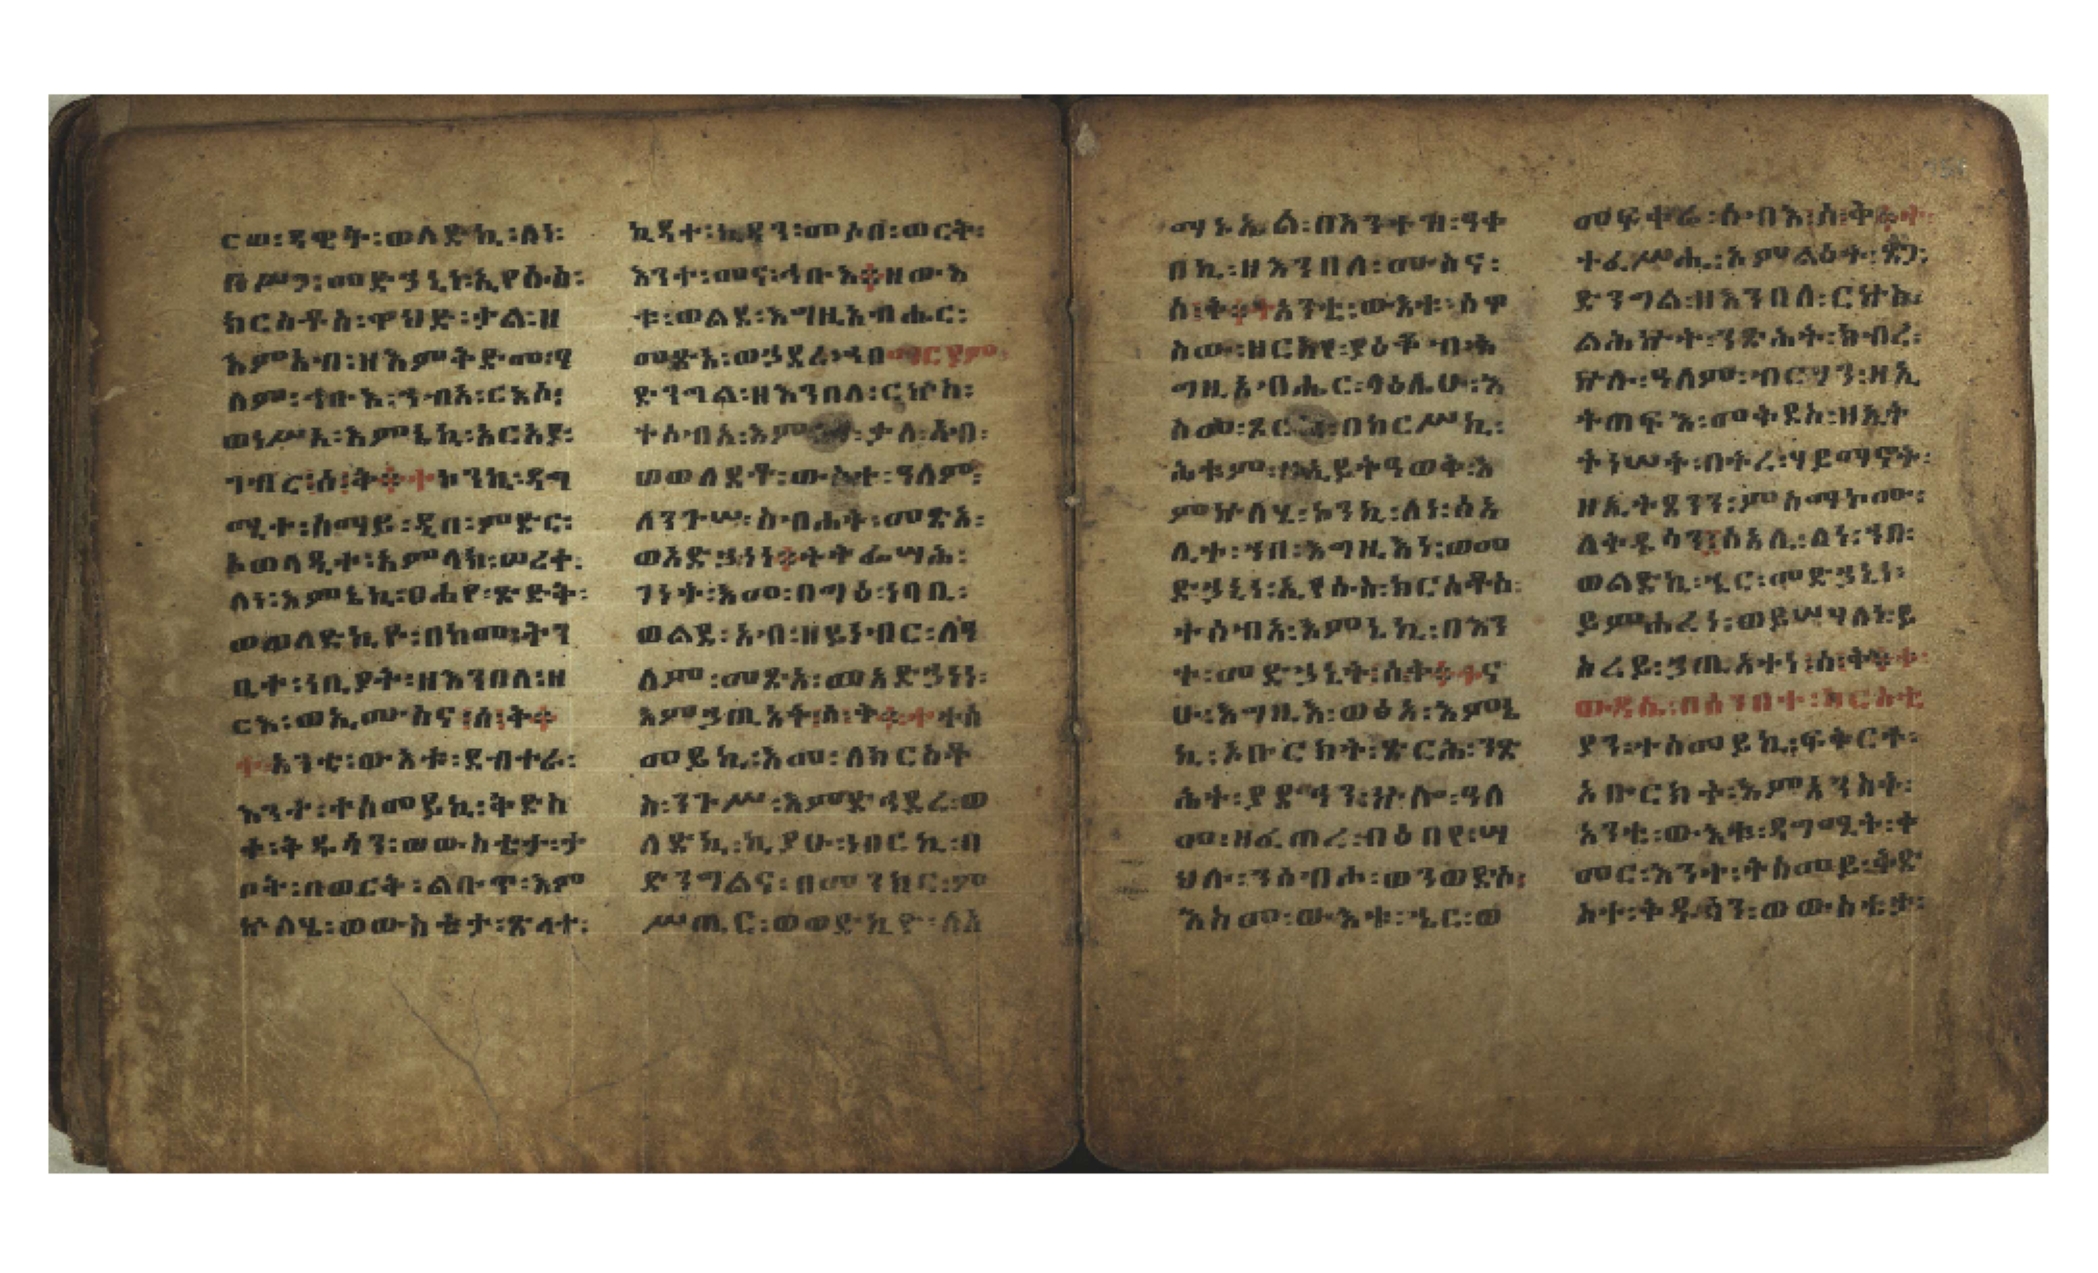 ርሀ፡ዳዊት፡ወለድኪ፡ለነ፡
በሥጋ፡መድኃኒነ፡ኢየሱስ፡
ክርስቶስ፡ዋህድ፡ቃል፡ዘ
እምአብ፡ዘእምቅድመ፡ዓ
ለም፡ኀቡእ፡ኀብአ፡ርእሶ፡
ወነሥአ፡እምኔኪ፡አርአያ፡
ገብር፡ሰ፡ቅ፨ተ ኮንኪ፡ዳግ
ሚተ፡ሰማይ፡ዲበ፡ምድር፡
ኦወላዲተ፡አምላክ፡ሠረቀ፡
ለነ፡እምኔኪ፡ፀሐየ፡ጽድቅ፡
ወወለድኪዮ፡በከመ፡ትን
ቢተ፡ነቢያት፡ዘእንበለ፡ዘ
ርእ፡ወኢሙስና፡ሰ፡ቅ፨
ተ አንቲ፡ውእቱ፡ደብተራ፡
እንተ፡ተሰመይኪ፡ቅድስ
ተ፡ቅዱሳን፡ወውስቴታ፡ታ
ቦት፡በወርቅ፡ልቡጥ፡እም
ኵለሄ፡ወውስቴታ፡ጽላተ፡
ኪዳተ፡ኪዳን፡መሶበ፡ወርቅ፡
እንተ፡መና፡ኅቡእ፨ዘውእ
ቱ፡ወልደ፡እግዚአብሔር፡
መጽአ፡ወኃደረ፡ኀበ ማርያም፡
ድንግል፡ዘእንበለ፡ርኵስ፡
ተሰብአ፡ ቃለ፡አብ፡
ወወለደቶ፡ውስተ፡ዓለም፡
ለንጉሠ፡ስብሐት፡መጽአ፡
ወአድኃነነ፨ትትፌሣሕ፡
ገነት፡እመ፡በግዕ፡ነባቢ፡
ወልደ፡አብ፡ዘይነብር፡ለዓ
ለም፡መጽአ፡ወአድኃነነ፡
እምኃጢአት፡ሰ፡ቅ፨ተ ተሰ
መይኪ፡እመ፡ለክርስቶ
ስ፡ንጉሥ፡እምድኅረ፡ወ
ለድኪ፡ኪያሁ፡ነበርኪ፡በ
ድንግልና፡በመንክር፡ም
ሥጢር፡ወወድኪዮ፡ለአ
ማኑኤል፡በእንተዝ፡ዓቀ
በኪ፡ዘእንበለ፡ሙስና፡
ሰ፡ቅ፨ተ አንቲ፡ውእቱ፡ሰዋ
ስው፡ዘርእየ፡ያዕቆብ፡እ
ግዚአብሔር፡ላዕሌሁ፡እ
ስመ፡ በከርሥኪ፡
ሕቱም፡ዘኢይትዓወቅ፡እ
ምኵለሄ፡ኮንኪ፡ለነ፡ሰአ
ሊተ፡ኀበ፡እግዚእነ፡ወመ
ድኃኒነ፡ኢየሱስ፡ክርስቶስ፡
ተሰብአ፡እምኔኪ፡በእን
ተ፡መድኃኒት፡ሰ፡ቅ፨ተ ና
ሁ፡እግዚእ፡ወፅአ፡እምኔ
ኪ፡ኦቡርክት፡ጽርሕ፡ንጽ
ሕት፡ያድኅን፡ኵሎ፡ዓለ
መ፡ዘፈጠረ፡በዕበየ፡ሣ
ህሉ፡ንሰብሖ፡ወንወድሶ፡
እስመ፡ውእቱ፡ኄር፡ወ
መፍቀሬ፡ሰብእ፡ሰ፡ቅ፨ተ፡
ተፈሥሒ፡እምልዕተ፡ጸጋ፡
ድንግል፡ዘእንበለ፡ርኵስ፡
ልሕኵት፡ንጽሕት፡ክብረ፡
ኵሉ፡ዓለም፡ብርሃን፡ዘኢ
ትጠፍእ፡መቅደስ፡ዘኢት
ትነሠት፡በትረ፡ሃይማኖት፡
ዘኢትፀንን፡ምስማኮሙ፡
ለቅዱሳን፡ሰአሊ፡ለነ፡ኀበ፡
ወልድኪ፡ኄር፡መድኃኒነ፡
ይምሐረነ፡ወይሣሃለነ፡ይ
ስረይ፡ኃጢአተነ፡ሰ፡ቅ፨ተ፡
ውዳሴ፡በሰንበተ፡ክርስቲ
ያን፡ተሰመይኪ፡ፍቅርተ፡
ኦቡርክት፡እምአንስት፡
አንቲ፡ውእቱ፡ዳግሚት፡ቀ
መር፡እንተ፡ትሰመይ፡ቅድ
ስተ፡ቅዱሳን፡ወውስቴታ፡